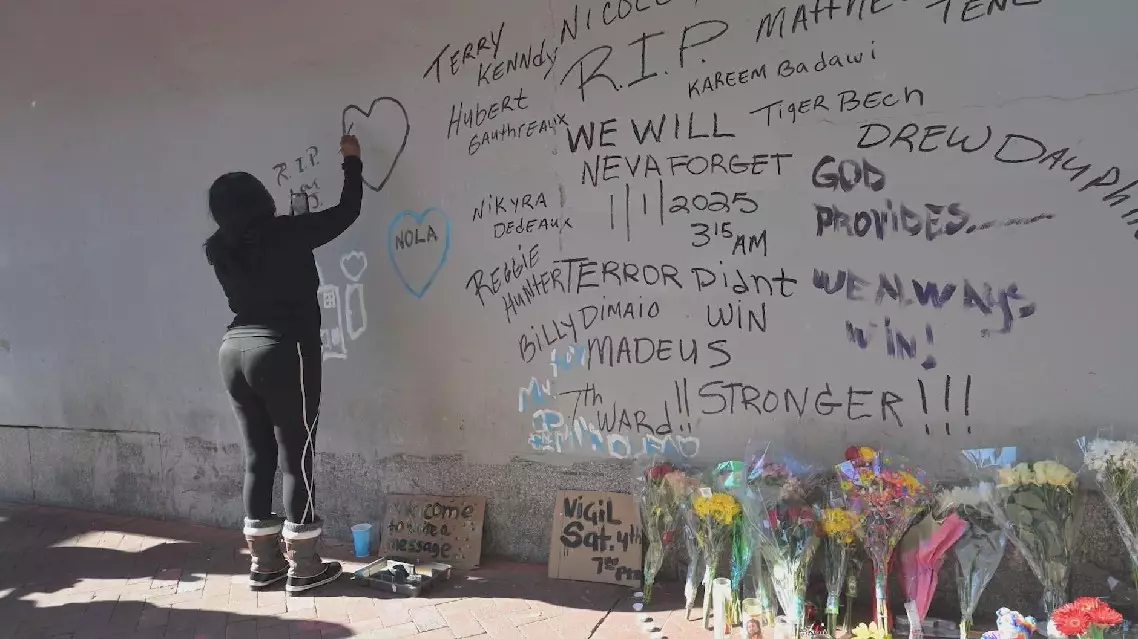 NICOLE
MATTHE
TENE
TERRY
KENNDY
R.I.P.
KAREEM BADAWI
HUBERT
GAUTHREAUX
TIGER BECH
WE WILL
NEVA FORGET
1/1/2025
3¹⁵AM
DREW DAUPH
GOD
PROVIDES
R.I.P.
NIKYRA
DEDEAUX
NOLA
REGGIE
HUNTER
TERROR DIDNT
WIN
BILLY DIMAIO
WE ALWAYS
WIN!
MADEUS
STRONGER!!!
7th
WARD!!
WELCOME
to write a
message
VIGIL
Sat. 4th
7:00 PM